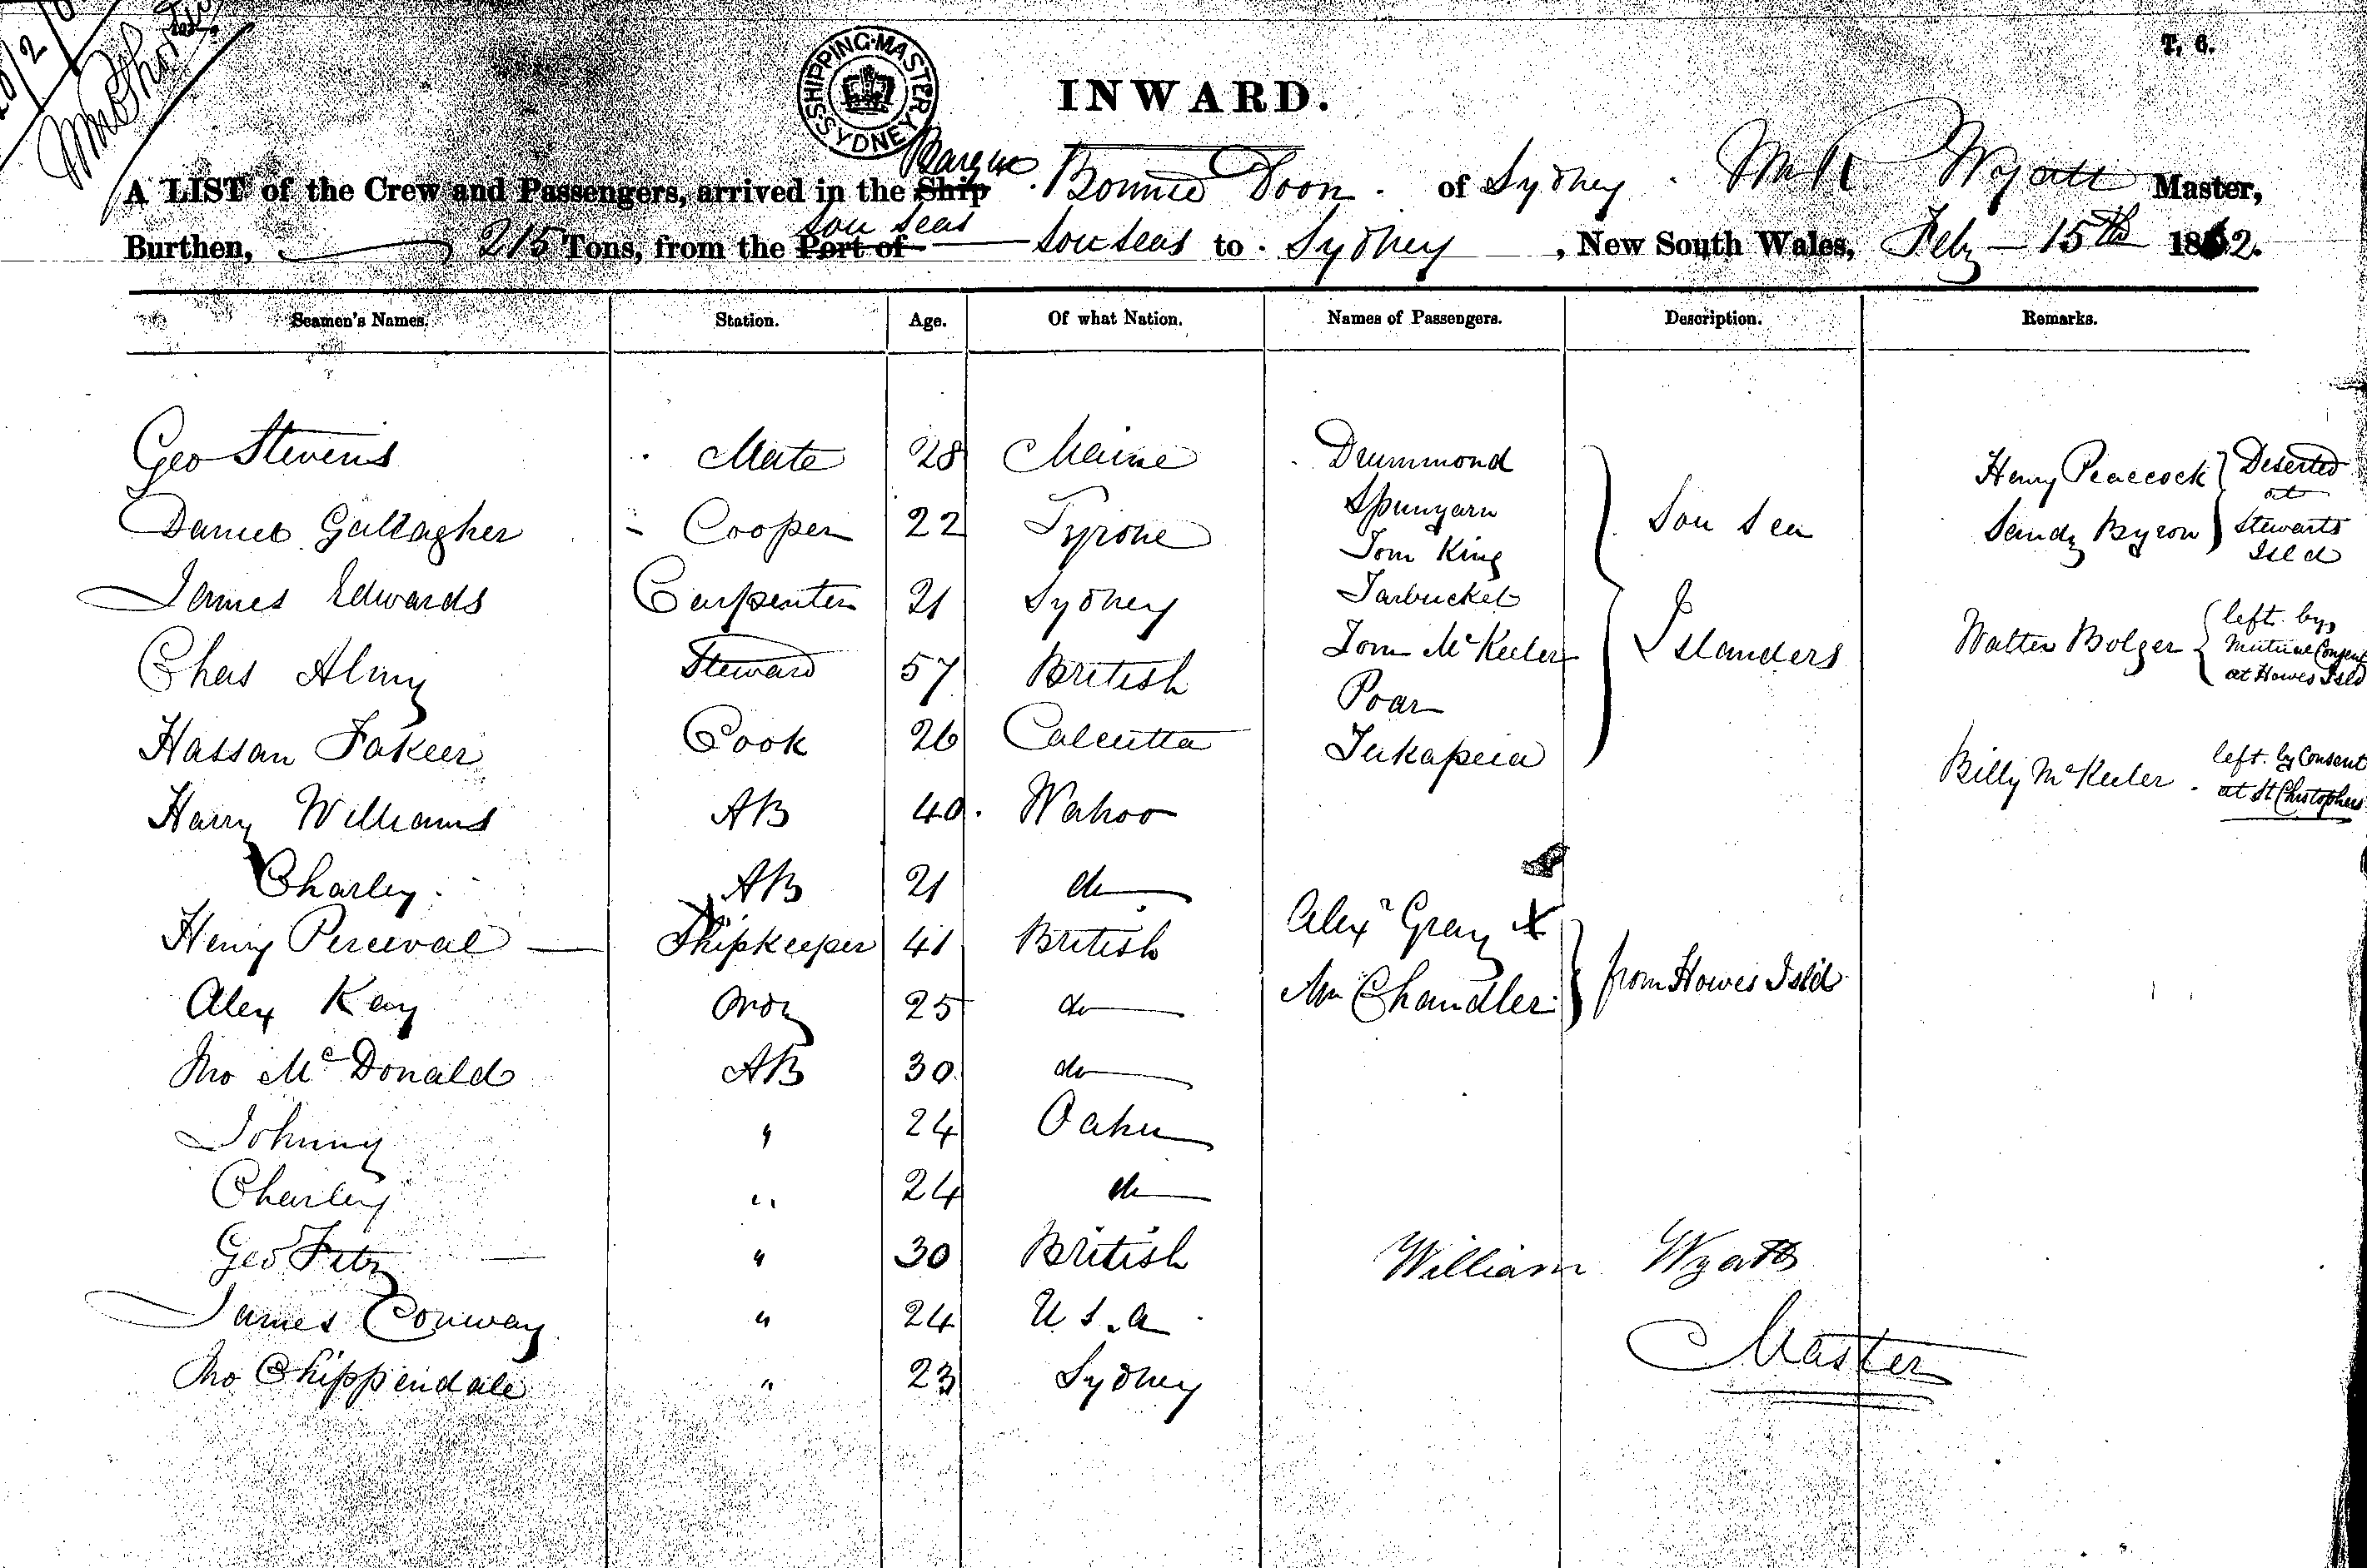 T. 6.
SHIPPING MASTER SYDNEY
INWARD.
Barque
A LIST of the Crew and Passengers, arrived in the Ship Bonnie Doon. of Sydney. Wm R Wyatt Master,
Sou Seas
Burthen, 215 Tons, from the Port of Sou Seas to Sydney, New South Wales, Feby 15th 1862.
Seamen's Names. Station. Age. Of what Nation. Names of Passengers. Description. Remarks.
Geo Stevens Mate 28 Maine Drummond Henry Peacock } Deserted
at
Daniel Gallagher Cooper 22 Tyrone Spunyarn Sou Sea Sandy Byron } Stewarts
Isld
Tom King
James Edwards Carpenter 21 Sydney Tarbucket
Chas Almy Steward 57 British Tom McKeeler Islanders Walter Bolger { left by
Mutual Consent
at Howes Isld
Poar
Hassan Fakeer Cook 26 Calcutta Tukapeia
Billy McKeeler. left by Consent
at St Christophers
Harry Williams AB 40. Wahoo
Charley. AB 21 do
Henry Perceval Shipkeeper 41 British Alexr Gray X
Alex Kay Ordy 25 do Wm Chandler } from Howes Isld
Jno McDonald AB 30 do
Johnny " 24 Oahu
Charley " 24 do
Geo Fitz " 30 British William Wyatt
James Conway " 24 U S. a Master
Jno Chippendale " 23 Sydney